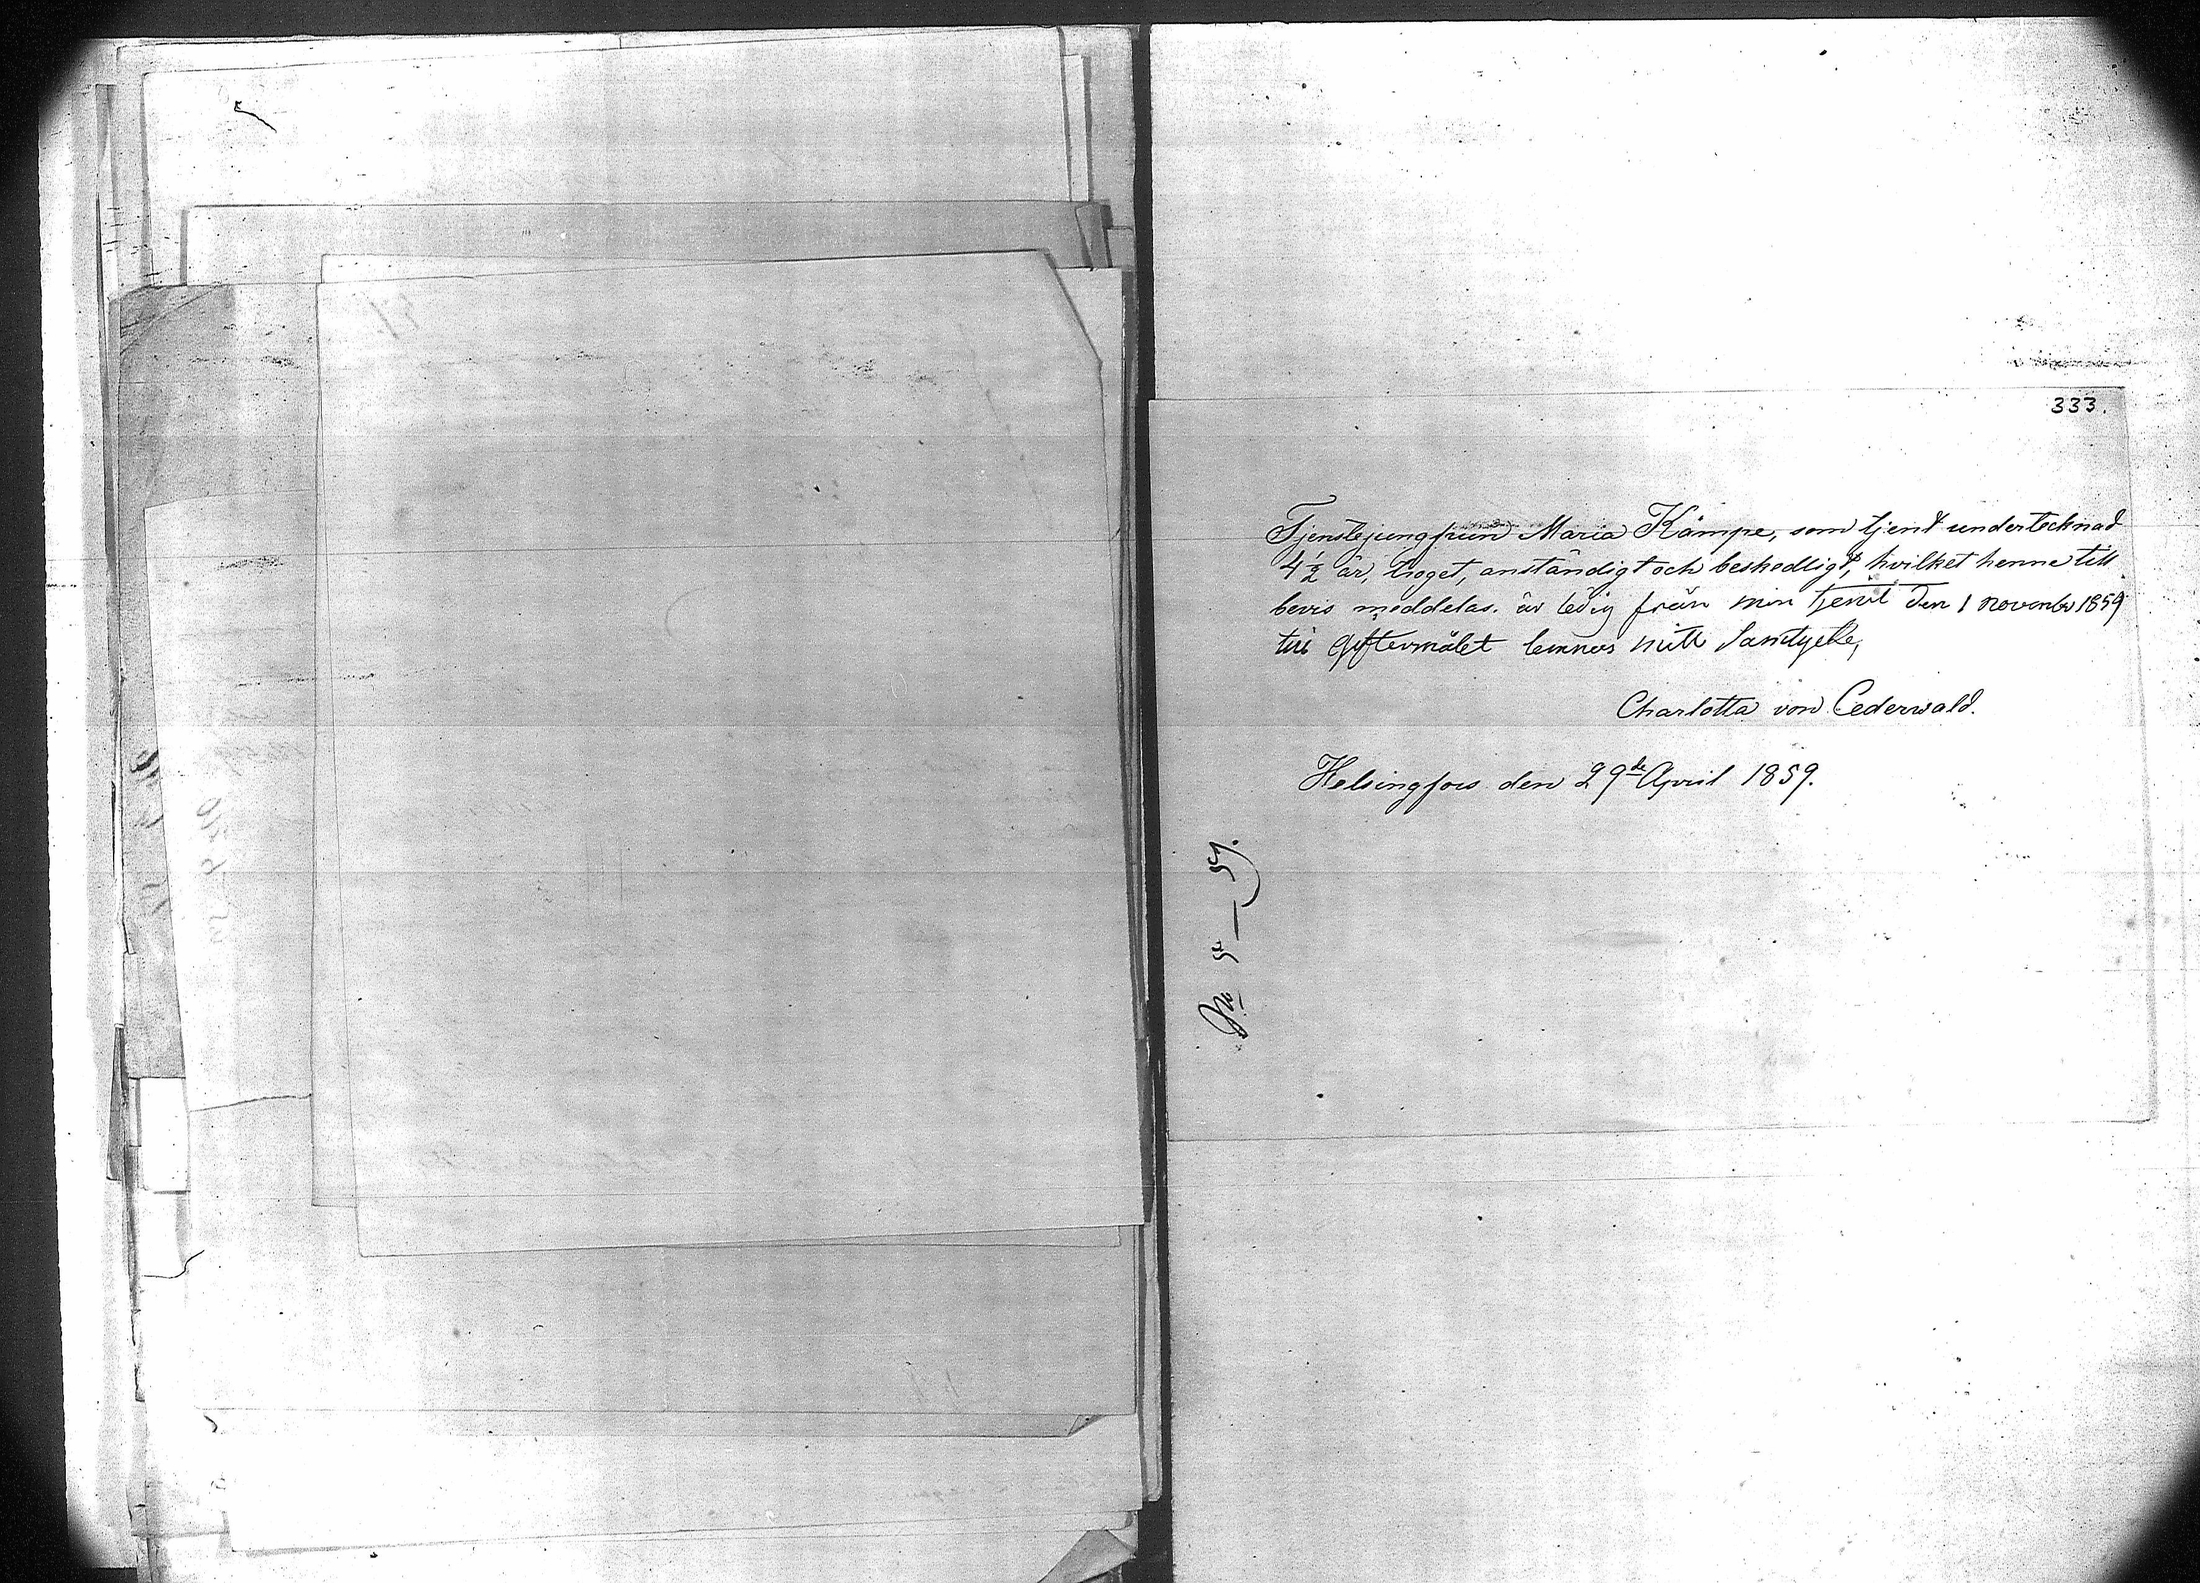 333.
Tjenstejungfrun Maria Kämpe, som tjent undertecknad
4½ år, troget, anständigt och beskedligt, hvilket henne till
bevis meddelas. är ledig från min tjenst den 1 november 1859
till giftermålet lemnas mitt Samtycke,
Charlotta von Cederwald.
Helsingfors den 29de April 1859.